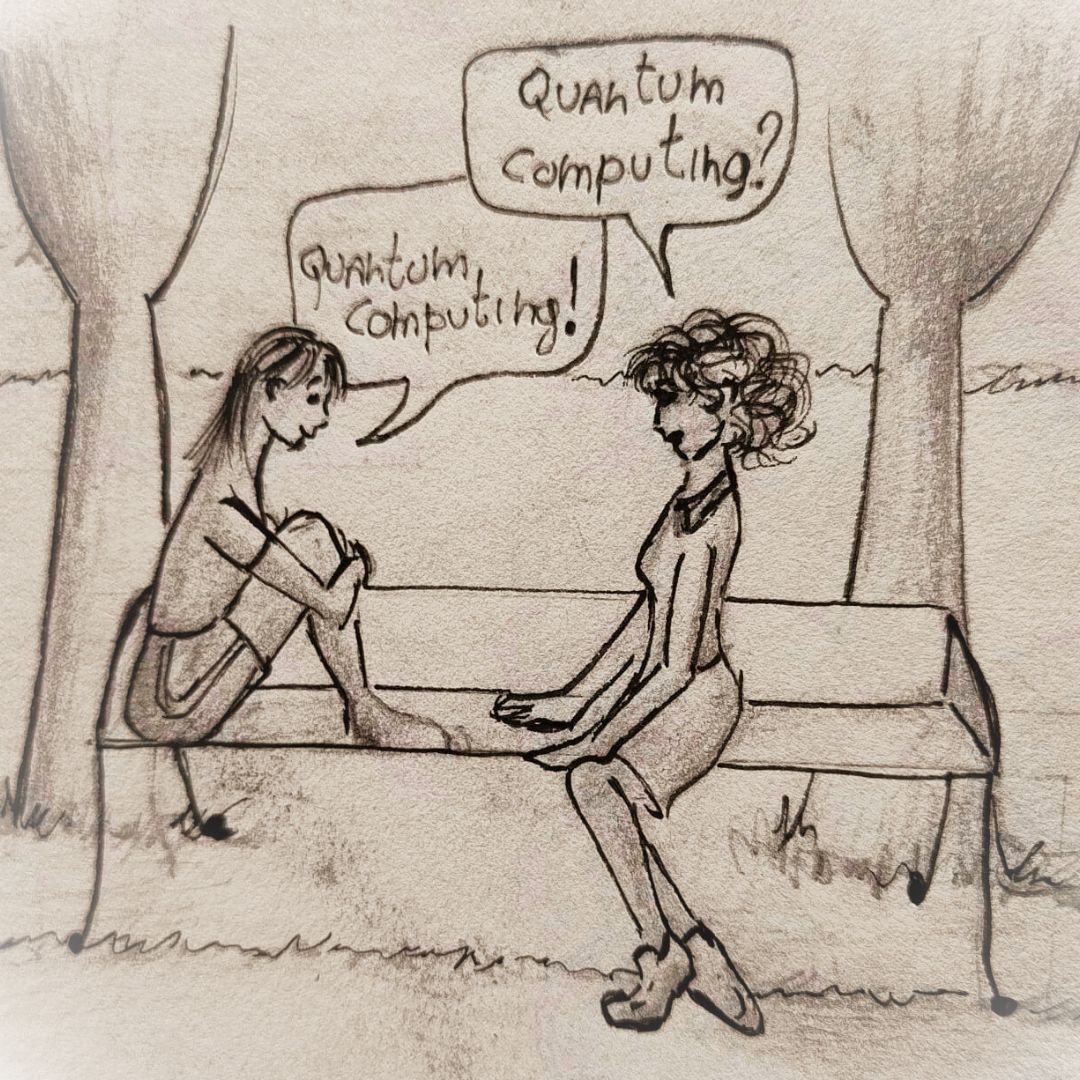 Quantum
computing?
Quantum
computing!